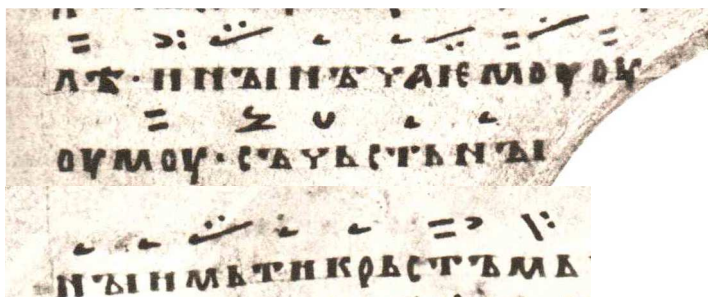 лѣ · и нꙑнѣ чаѥмоуоу
оумоу · съчьстьнꙑ
нꙑимьтикрьстъмь